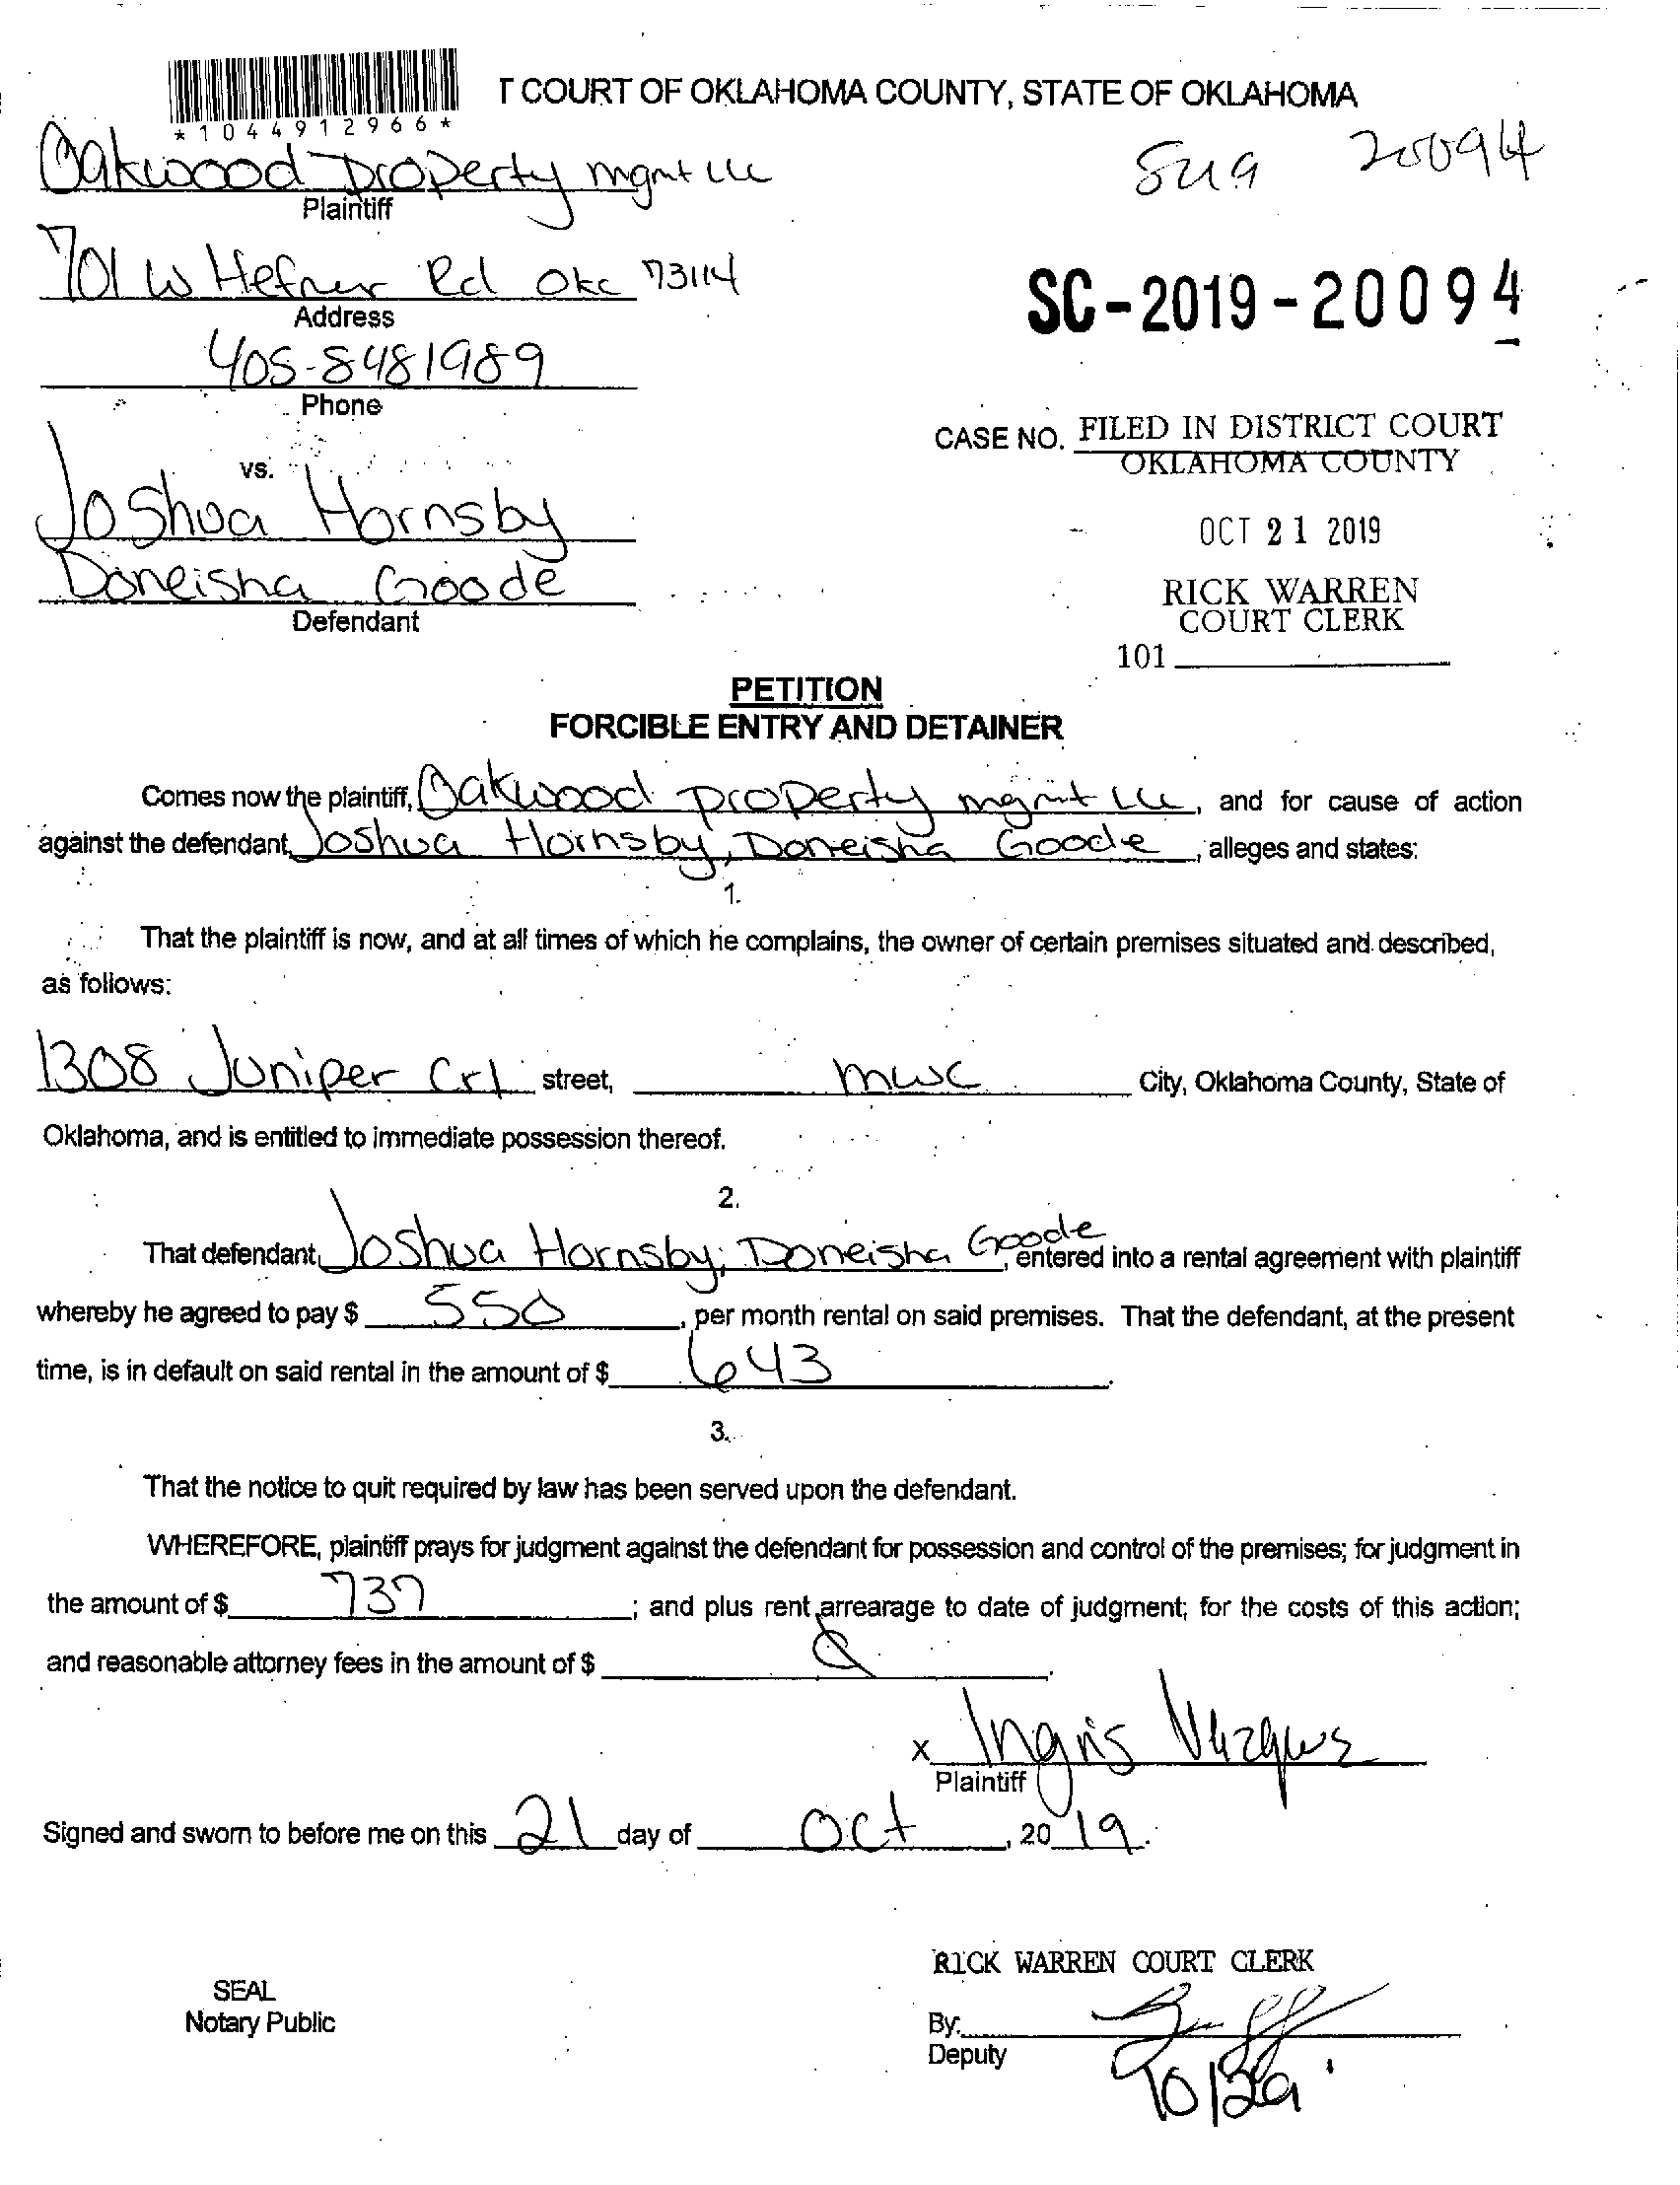 T COURT OF OKLAHOMA COUNTY, STATE OF OKLAHOMA
*1044912966*
Oakwood Property mgmt LLC
Plaintiff
20094
701 W Hefner Rd Okc 73114
Address
SC-2019-20094
405-8481989
Phone
CASE NO. FILED IN DISTRICT COURT
OKLAHOMA COUNTY
vs.
Joshua Hornsby
OCT 21 2019
Doneisha Goode
Defendant
RICK WARREN
COURT CLERK
101
PETITION
FORCIBLE ENTRY AND DETAINER
Comes now the plaintiff, Oakwood property mgmt LLC, and for cause of action
against the defendant, Joshua Hornsby, Doneisha Goode, alleges and states:
1.
That the plaintiff is now, and at all times of which he complains, the owner of certain premises situated and described,
as follows:
1308 Juniper Crl street, mwc City, Oklahoma County, State of
Oklahoma, and is entitled to immediate possession thereof.
2.
That defendant, Joshua Hornsby; Doneisha Goode, entered into a rental agreement with plaintiff
whereby he agreed to pay $ 550, per month rental on said premises. That the defendant, at the present
time, is in default on said rental in the amount of $ 643.
3.
That the notice to quit required by law has been served upon the defendant.
WHEREFORE, plaintiff prays for judgment against the defendant for possession and control of the premises; for judgment in
the amount of $ 737; and plus rent arrearage to date of judgment; for the costs of this action;
and reasonable attorney fees in the amount of $
x Ingris
Plaintiff
Signed and sworn to before me on this 21 day of Oct, 2019.
RICK WARREN COURT CLERK
SEAL
Notary Public
By:
Deputy